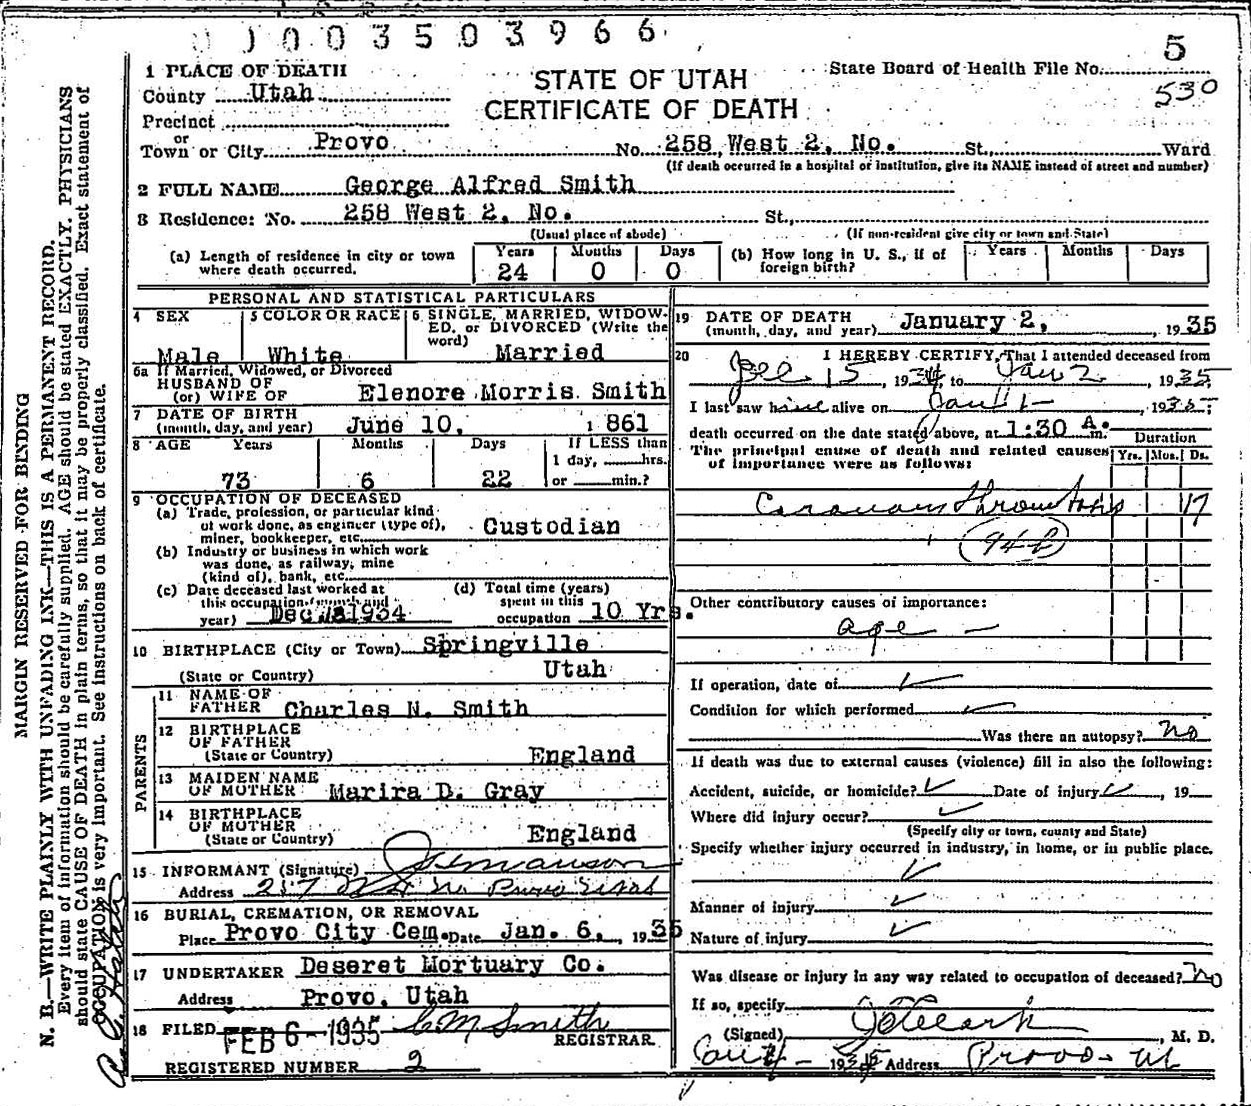 0003503966
5
530
1 PLACE OF DEATH
STATE OF UTAH
CERTIFICATE OF DEATH
State Board of Health File No.
County Utah
Precinct
or
Town or City Provo No. 258 West 2, No. St., Ward
(If death occurred in a hospital or institution, give its NAME instead of street and number)
2 FULL NAME George Alfred Smith
3 Residence: No. 258 West 2, No. St.,
(Usual place of abode) (If non-resident give city or town and State)
(a) Length of residence in city or town where death occurred. Years 24 Months 0 Days 0
(b) How long in U. S., if of foreign birth? Years Months Days
PERSONAL AND STATISTICAL PARTICULARS
4 SEX Male
5 COLOR OR RACE White
6 SINGLE, MARRIED, WIDOWED, or DIVORCED (Write the word) Married
6a If Married, Widowed, or Divorced
HUSBAND OF
(or) WIFE OF Elenore Morris Smith
7 DATE OF BIRTH
(month, day, and year) June 10, 1861
8 AGE Years Months Days If LESS than
1 day, hrs.
73 6 22 or min.?
9 OCCUPATION OF DECEASED
(a) Trade, profession, or particular kind
of work done, as engineer (type of),
miner, bookkeeper, etc. Custodian
(b) Industry or business in which work
was done, as railway, mine
(kind of), bank, etc.
(c) Date deceased last worked at
this occupation (month and
year) Dec 1934
(d) Total time (years)
spent in this
occupation 10 Yrs.
10 BIRTHPLACE (City or Town) Springville
(State or Country) Utah
PARENTS
11 NAME OF
FATHER Charles N. Smith
12 BIRTHPLACE
OF FATHER
(State or Country) England
13 MAIDEN NAME
OF MOTHER Marira D. Gray
14 BIRTHPLACE
OF MOTHER
(State or Country) England
15 INFORMANT (Signature)
Address Provo Utah
16 BURIAL, CREMATION, OR REMOVAL
Place Provo City Cem. Date Jan. 6, 1935
17 UNDERTAKER Deseret Mortuary Co.
Address Provo, Utah
18 FILED FEB 6 - 1935 C M Smith
REGISTRAR
REGISTERED NUMBER 2
19 DATE OF DEATH
(month, day, and year) January 2, 1935
20 I HEREBY CERTIFY, That I attended deceased from
15, 1934, to Jan 2 1935
I last saw him alive on Jan 1 - , 1935;
death occurred on the date stated above, at 1:30 A. m.
The principal cause of death and related causes
of importance were as follows:
Duration
Yrs. Mos. Ds.
Coronary Thrombosis 17
(94-b)
Other contributory causes of importance:
age -
If operation, date of
Condition for which performed
Was there an autopsy? No
If death was due to external causes (violence) fill in also the following:
Accident, suicide, or homicide? Date of injury , 19
Where did injury occur?
(Specify city or town, county and State)
Specify whether injury occurred in industry, in home, or in public place.
Manner of injury
Nature of injury
Was disease or injury in any way related to occupation of deceased? No
If so, specify
(Signed) , M. D.
1935 Address Provo - Ut
MARGIN RESERVED FOR BINDING
N. B.—WRITE PLAINLY WITH UNFADING INK—THIS IS A PERMANENT RECORD.
Every item of information should be carefully supplied. AGE should be stated EXACTLY. PHYSICIANS
should state CAUSE OF DEATH in plain terms, so that it may be properly classified. Exact statement of
OCCUPATION is very important. See instructions on back of certificate.